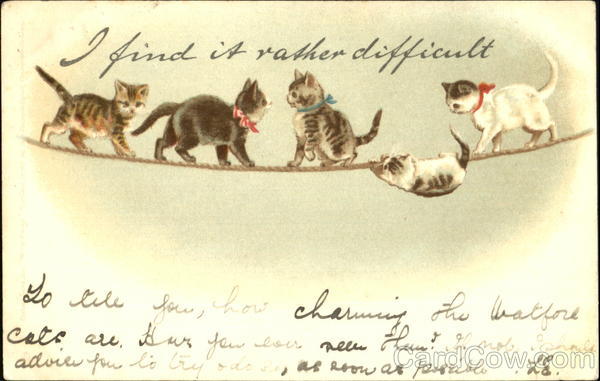 I find it rather difficult
To tell you, how charming the Watford
cats are. Have you ever seen them? If not I would
advise you to try &amp; do so, as soon as possible. LE.
CardCow.com